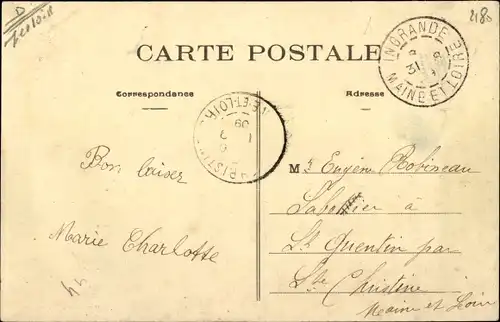 D
2180
CARTE POSTALE
Correspondance
Adresse
INGRANDE
31
MAINE ET LOIRE
09
Bon baiser
Marie Charlotte
44
Mr Eugène Robineau
Sabotier à
St Quentin par
Ste Christine
Maine et Loire